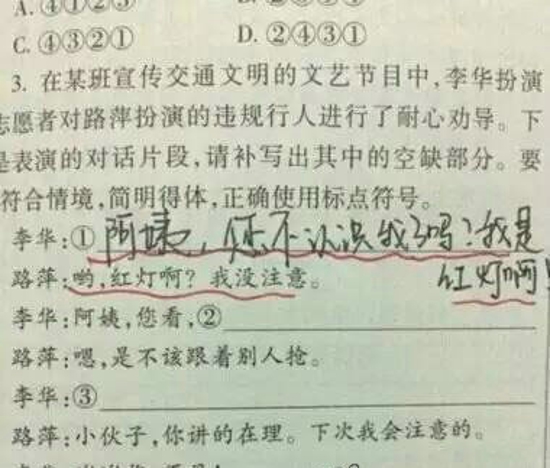 A.④①②③
C.④③②①
D.②④③①
3. 在某班宣传交通文明的文艺节目中,李华扮演
志愿者对路萍扮演的违规行人进行了耐心劝导。下
是表演的对话片段,请补写出其中的空缺部分。要
符合情境,简明得体,正确使用标点符号。
李华:①阿姨,您不认识我了吗?我是
红灯啊!
路萍:哟,红灯啊?我没注意。
李华:阿姨,您看,②
路萍:嗯,是不该跟着别人抢。
李华:③
路萍:小伙子,你讲的在理。下次我会注意的。